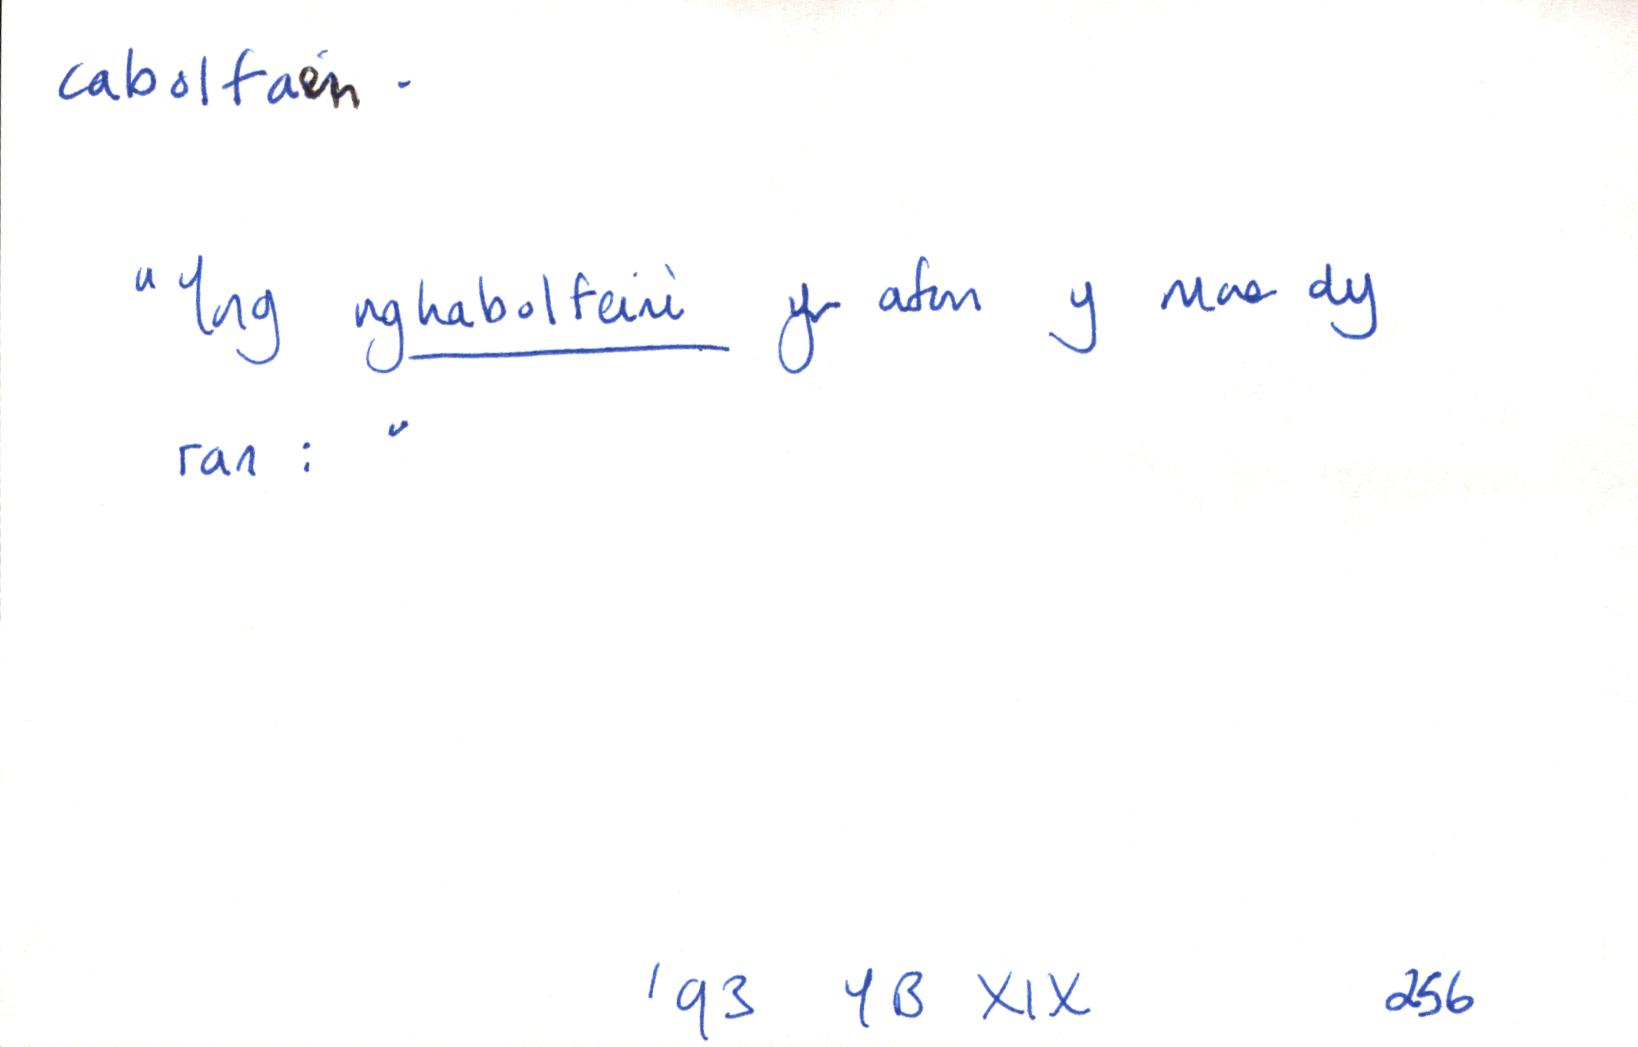 cabolfaen -
"Yng nghabolfeini yr afon y mae dy
ran : "
'93 YB XIX 256